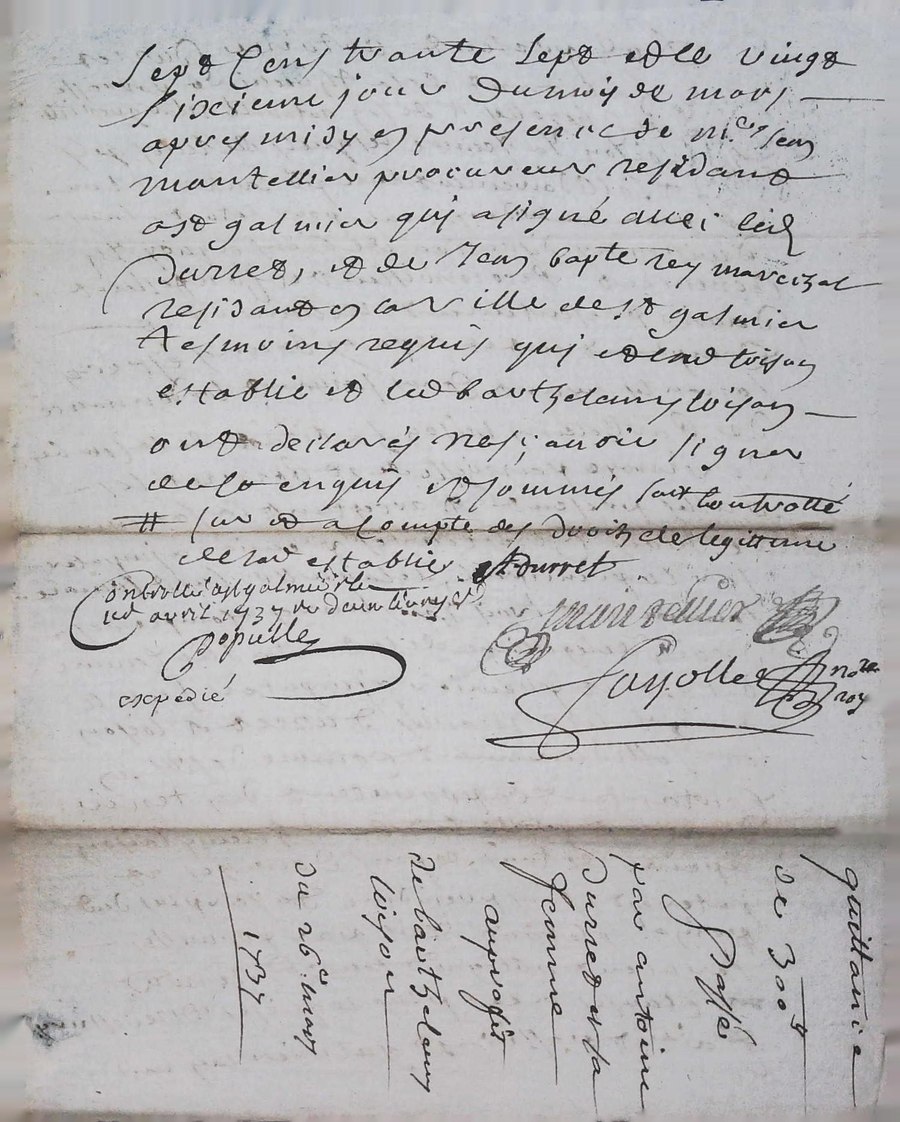 sept cens trante sept et le vingt
sixieme jour du moys de mars
apres midy en presence de me Jean
montellier procureur residant
a st galmier qui a signé avec led
Durret, et de Jean bapte rey marechal
residant en la ville de st galmier
tesmoins requis qui et lad loison
establie et led barthelemy loison
ont declarés ne sçavoir signer
de ce enquis et sommés soit controllé
# sur et a compte des droits de legittime
de lad establie A Durret
Controllé a st galmier le
avril 1737 r douze livres
Populle
expedié
montellier
Fayolle nore
roy
quittance
de 300 lt
passé
par antoine
Durret et sa
femme
au profit
de barthelemy
loison
du 26e mars
1737